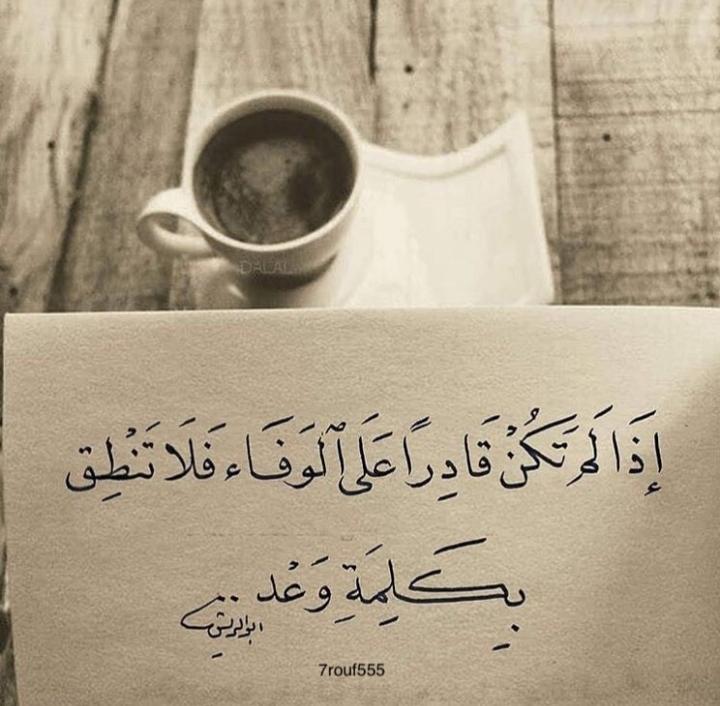 DALAL
إِذَا لَمْ تَكُنْ قَادِراً عَلَى ٱلْوَفَاء فَلَا تَنْطِق
بِكَلِمَةِ وَعْد ..
7rouf555